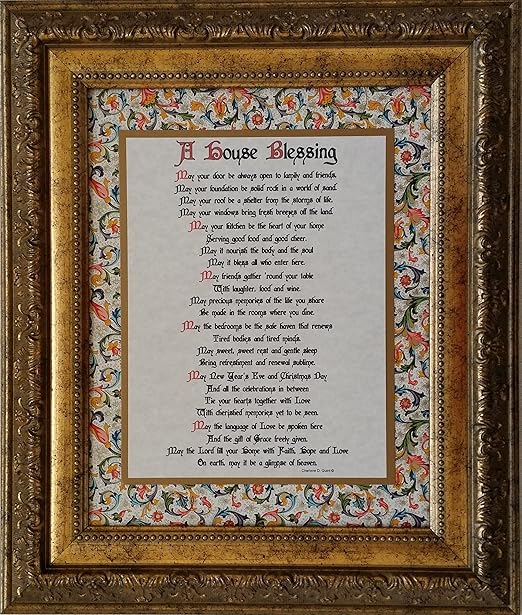 A House Blessing
May your door be always open to family and friends.
May your foundation be solid rock in a world of sand.
May your roof be a shelter from the storms of life.
May your windows bring fresh breezes off the land.
May your kitchen be the heart of your home
Serving good food and good cheer.
May it nourish the body and the soul
May it bless all who enter here.
May friends gather 'round your table
With laughter, food and wine.
May precious memories of the life you share
Be made in the rooms where you dine.
May the bedrooms be the safe haven that renews
Tired bodies and tired minds.
May sweet, sweet rest and gentle sleep
Bring refreshment and renewal sublime.
May New Year's Eve and Christmas Day
And all the celebrations in between
Tie your hearts together with Love
With cherished memories yet to be seen.
May the language of Love be spoken here
And the gift of Grace freely given.
May the Lord fill your Home with Faith, Hope and Love
On earth, may it be a glimpse of heaven.
Charlene D. Quint ©